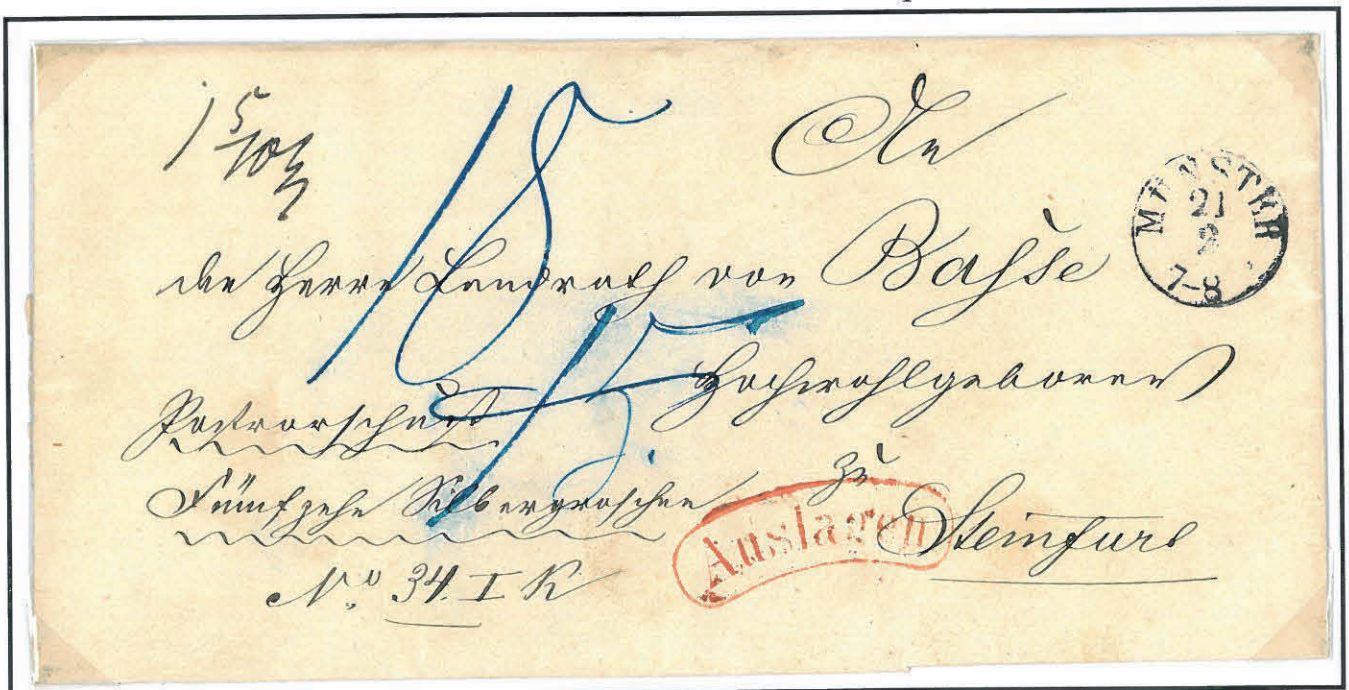 1 5/10
18
An
MUNSTER
21
2
7-8
den Herrn Landrath von Basse
15.
Hochwohlgeboren
Postvorschuß
Fünfzehn Silbergroschen
zu
Auslagen
Steinfurt
No 34. I K